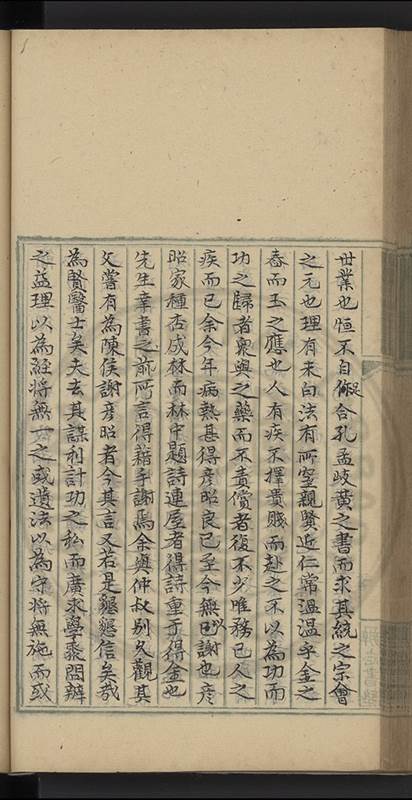 世業也恒不自足合孔孟岐黃之書而求其統之宗會
之元也理有來自法有所望親賢近仁常溫溫乎金之
春而玉之應也人有疾不擇貴賤而赴之不以為功而
功之歸者衆與之藥而不責償者復不少唯務已人之
疾而已余今年病熱甚得彥昭良已至今無以謝也彥
昭家種杏成林而林中題詩連屋者得詩重于得金也
先生幸書之前所言得藉手謝焉余與仲叔別久觀其
父嘗有為陳侯謝彥昭者今其言又若是懇懇信矣哉
為賢醫士矣夫去其謀利計功之私而廣求學聚問辨
之益理以為經將無一之或遺法以為守將無施而或